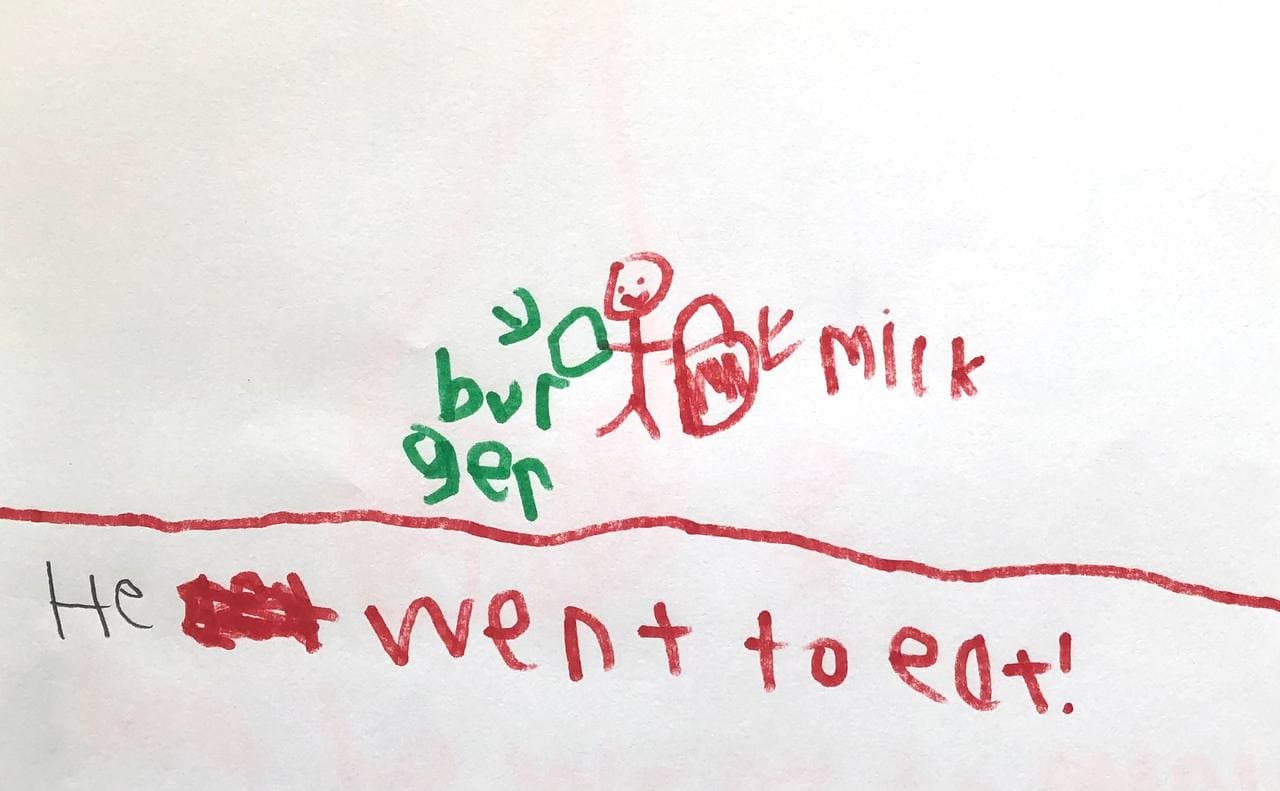 bur
ger
milk
He went to eat!